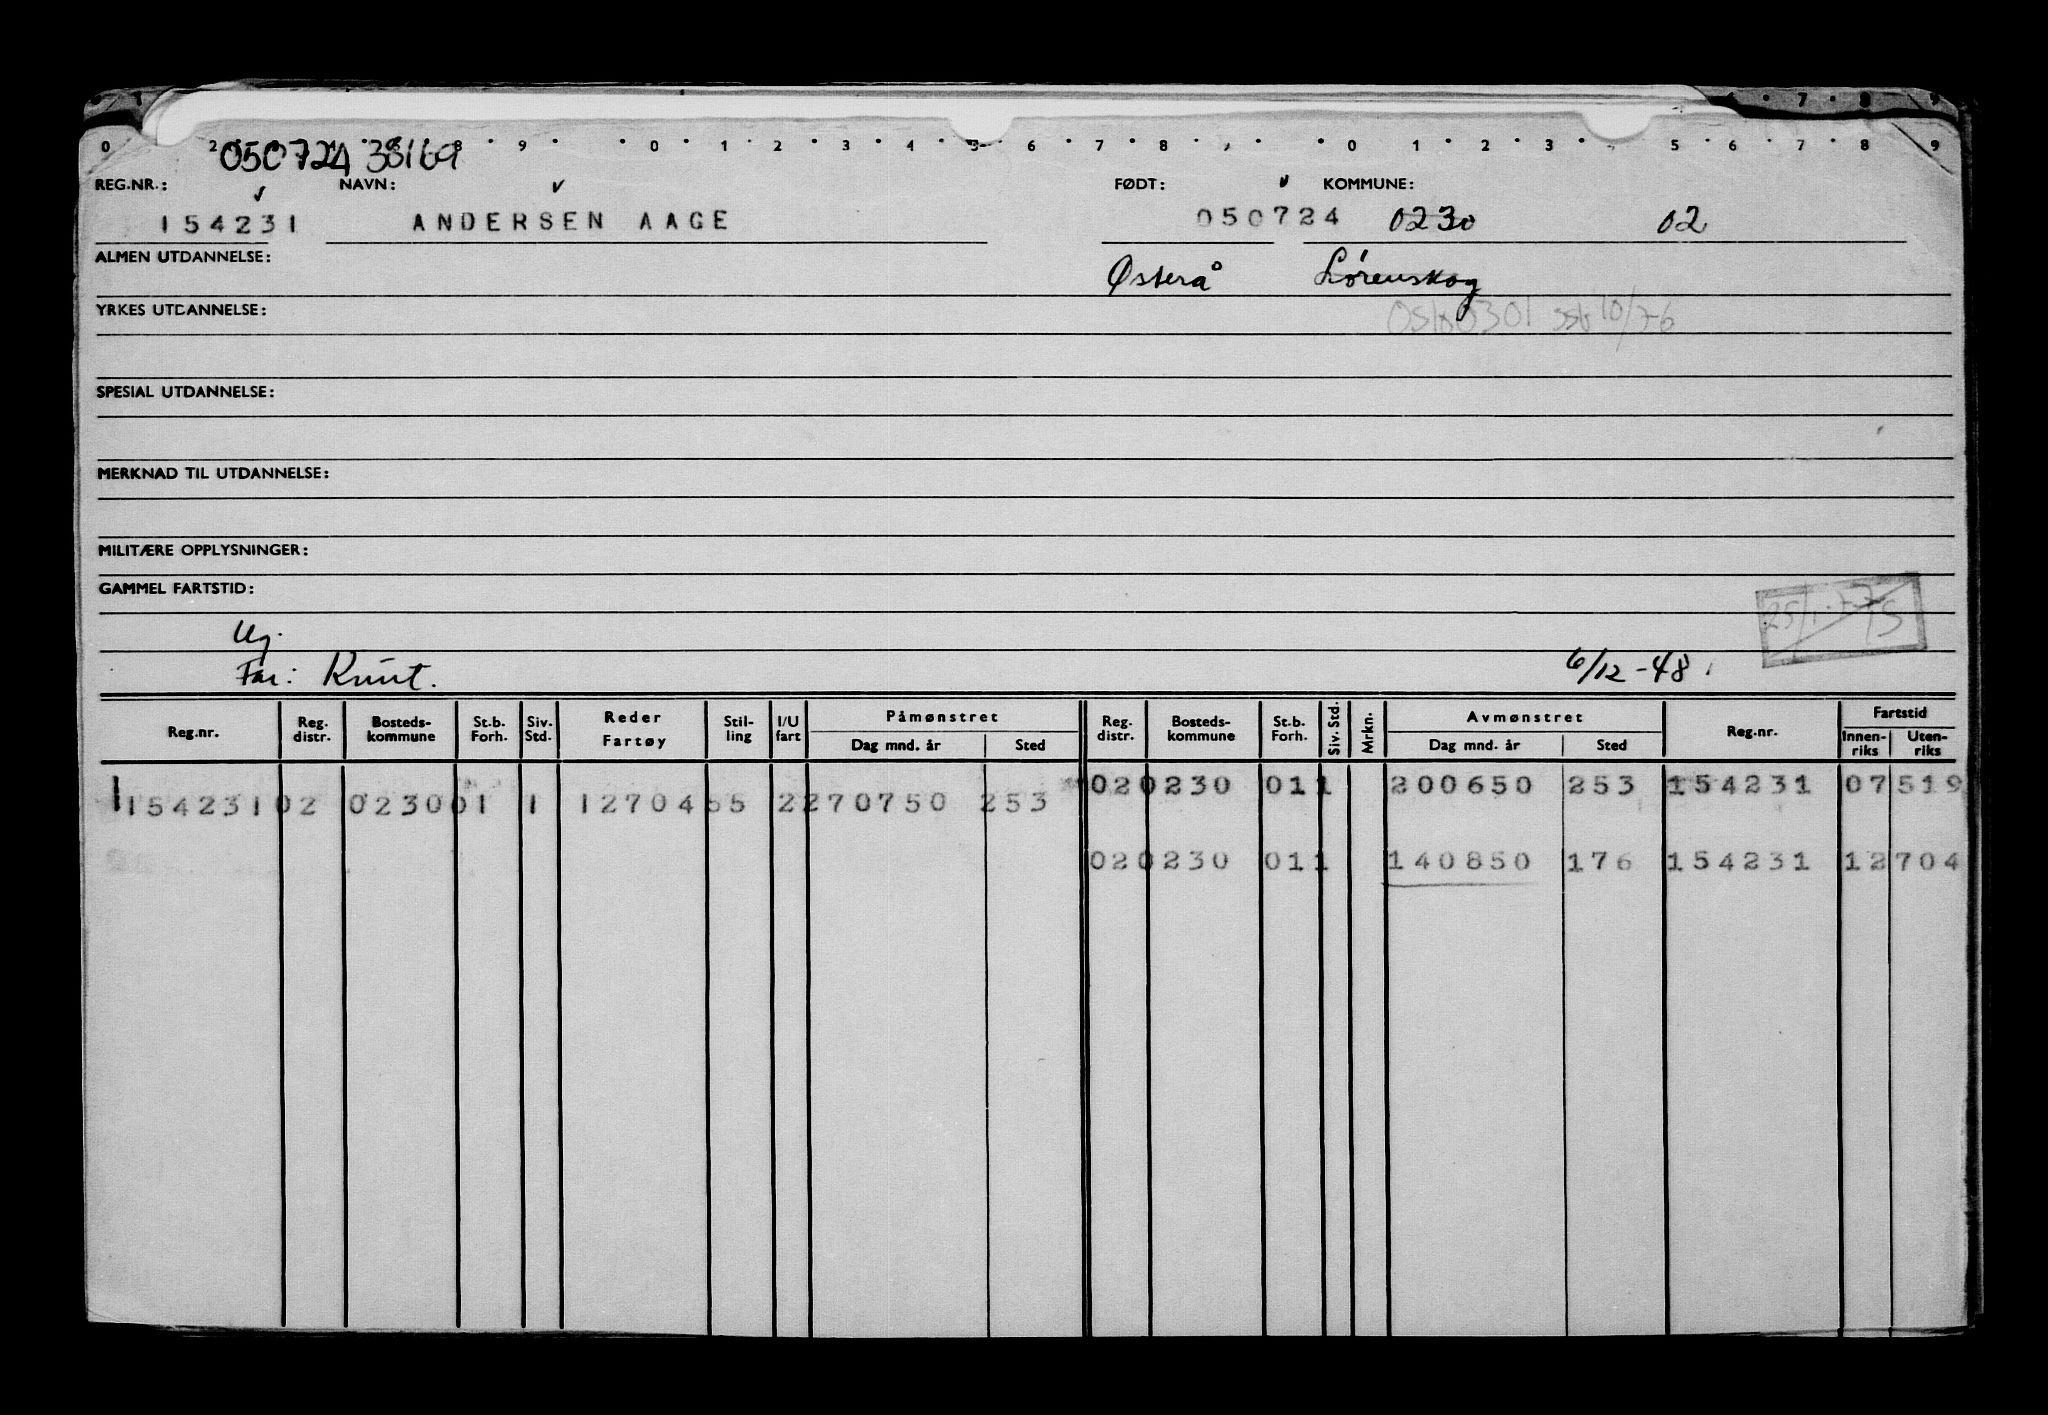 0 2 8 9 0 1 2 3 4 5 6 7 8 0 1 2 3 5 6 7 8 9
050724 38169
REG.NR.: NAVN: FØDT: KOMMUNE:
154231 ANDERSEN AAGE 050724 0230 02
ALMEN UTDANNELSE: Østerå Lørenskog
YRKES UTDANNELSE: Oslo 0301 ssb 10/76
SPESIAL UTDANNELSE:
MERKNAD TIL UTDANNELSE:
MILITÆRE OPPLYSNINGER:
GAMMEL FARTSTID:
Ug.
Far: Knut. 6/12-48
Reg.nr. Reg. distr. Bosteds-kommune St.b. Forh. Siv. Std. Reder Fartøy Stil-ling I/U fart Påmønstret Dag mnd. år Sted Reg. distr. Bosteds-kommune St.b. Forh. Siv. Std. Mrkn. Avmønstret Dag mnd. år Sted Reg.nr. Fartstid Innen-riks Uten-riks
020230 011 200650 253 154231 07519
154231 02 0230 01 1 12704 55 2 270750 253
020230 011 140850 176 154231 12704